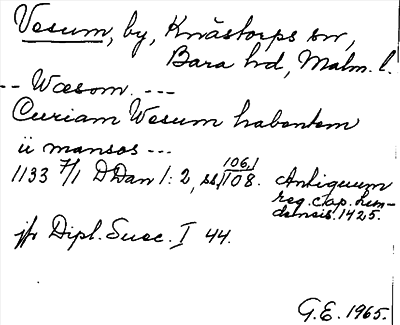 Vesum, by, Knästorps sn,
Bara hd, Malm. l.
-- Wæsom. ---
Curiam Wesum habentem
ii mansos ---
1133 7/1 DDan 1:2, ss. 106, 108. Antiquum
reg. cap. Lun-
densis. 1425.
jfr Dipl. Suec. I 44.
G.E. 1965.